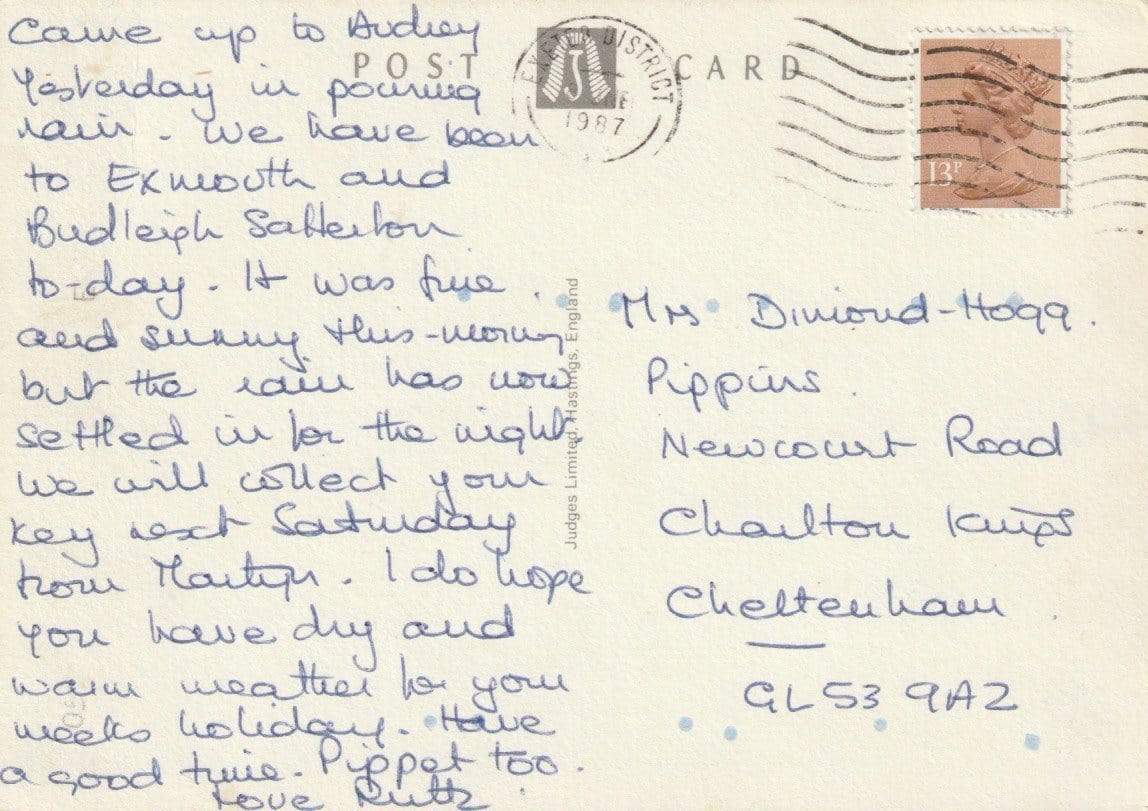 Came up to Audrey
Yesterday in pouring
rain. We have been
to Exmouth and
Budleigh Salterton
to-day. It was fine
and sunny this-morning
but the rain has now
settled in for the night.
We will collect your
key next Saturday
from Martyn. I do hope
you have dry and
warm weather for your
weeks holiday. Have
a good time. Pippet too.
Love Ruth
POST CARD
J
EXETER DISTRICT
1987
13P
Judges Limited, Hastings, England
Mrs Dimond-Hogg.
Pippins.
Newcourt Road
Charlton Kings
Cheltenham.
GL53 9AZ